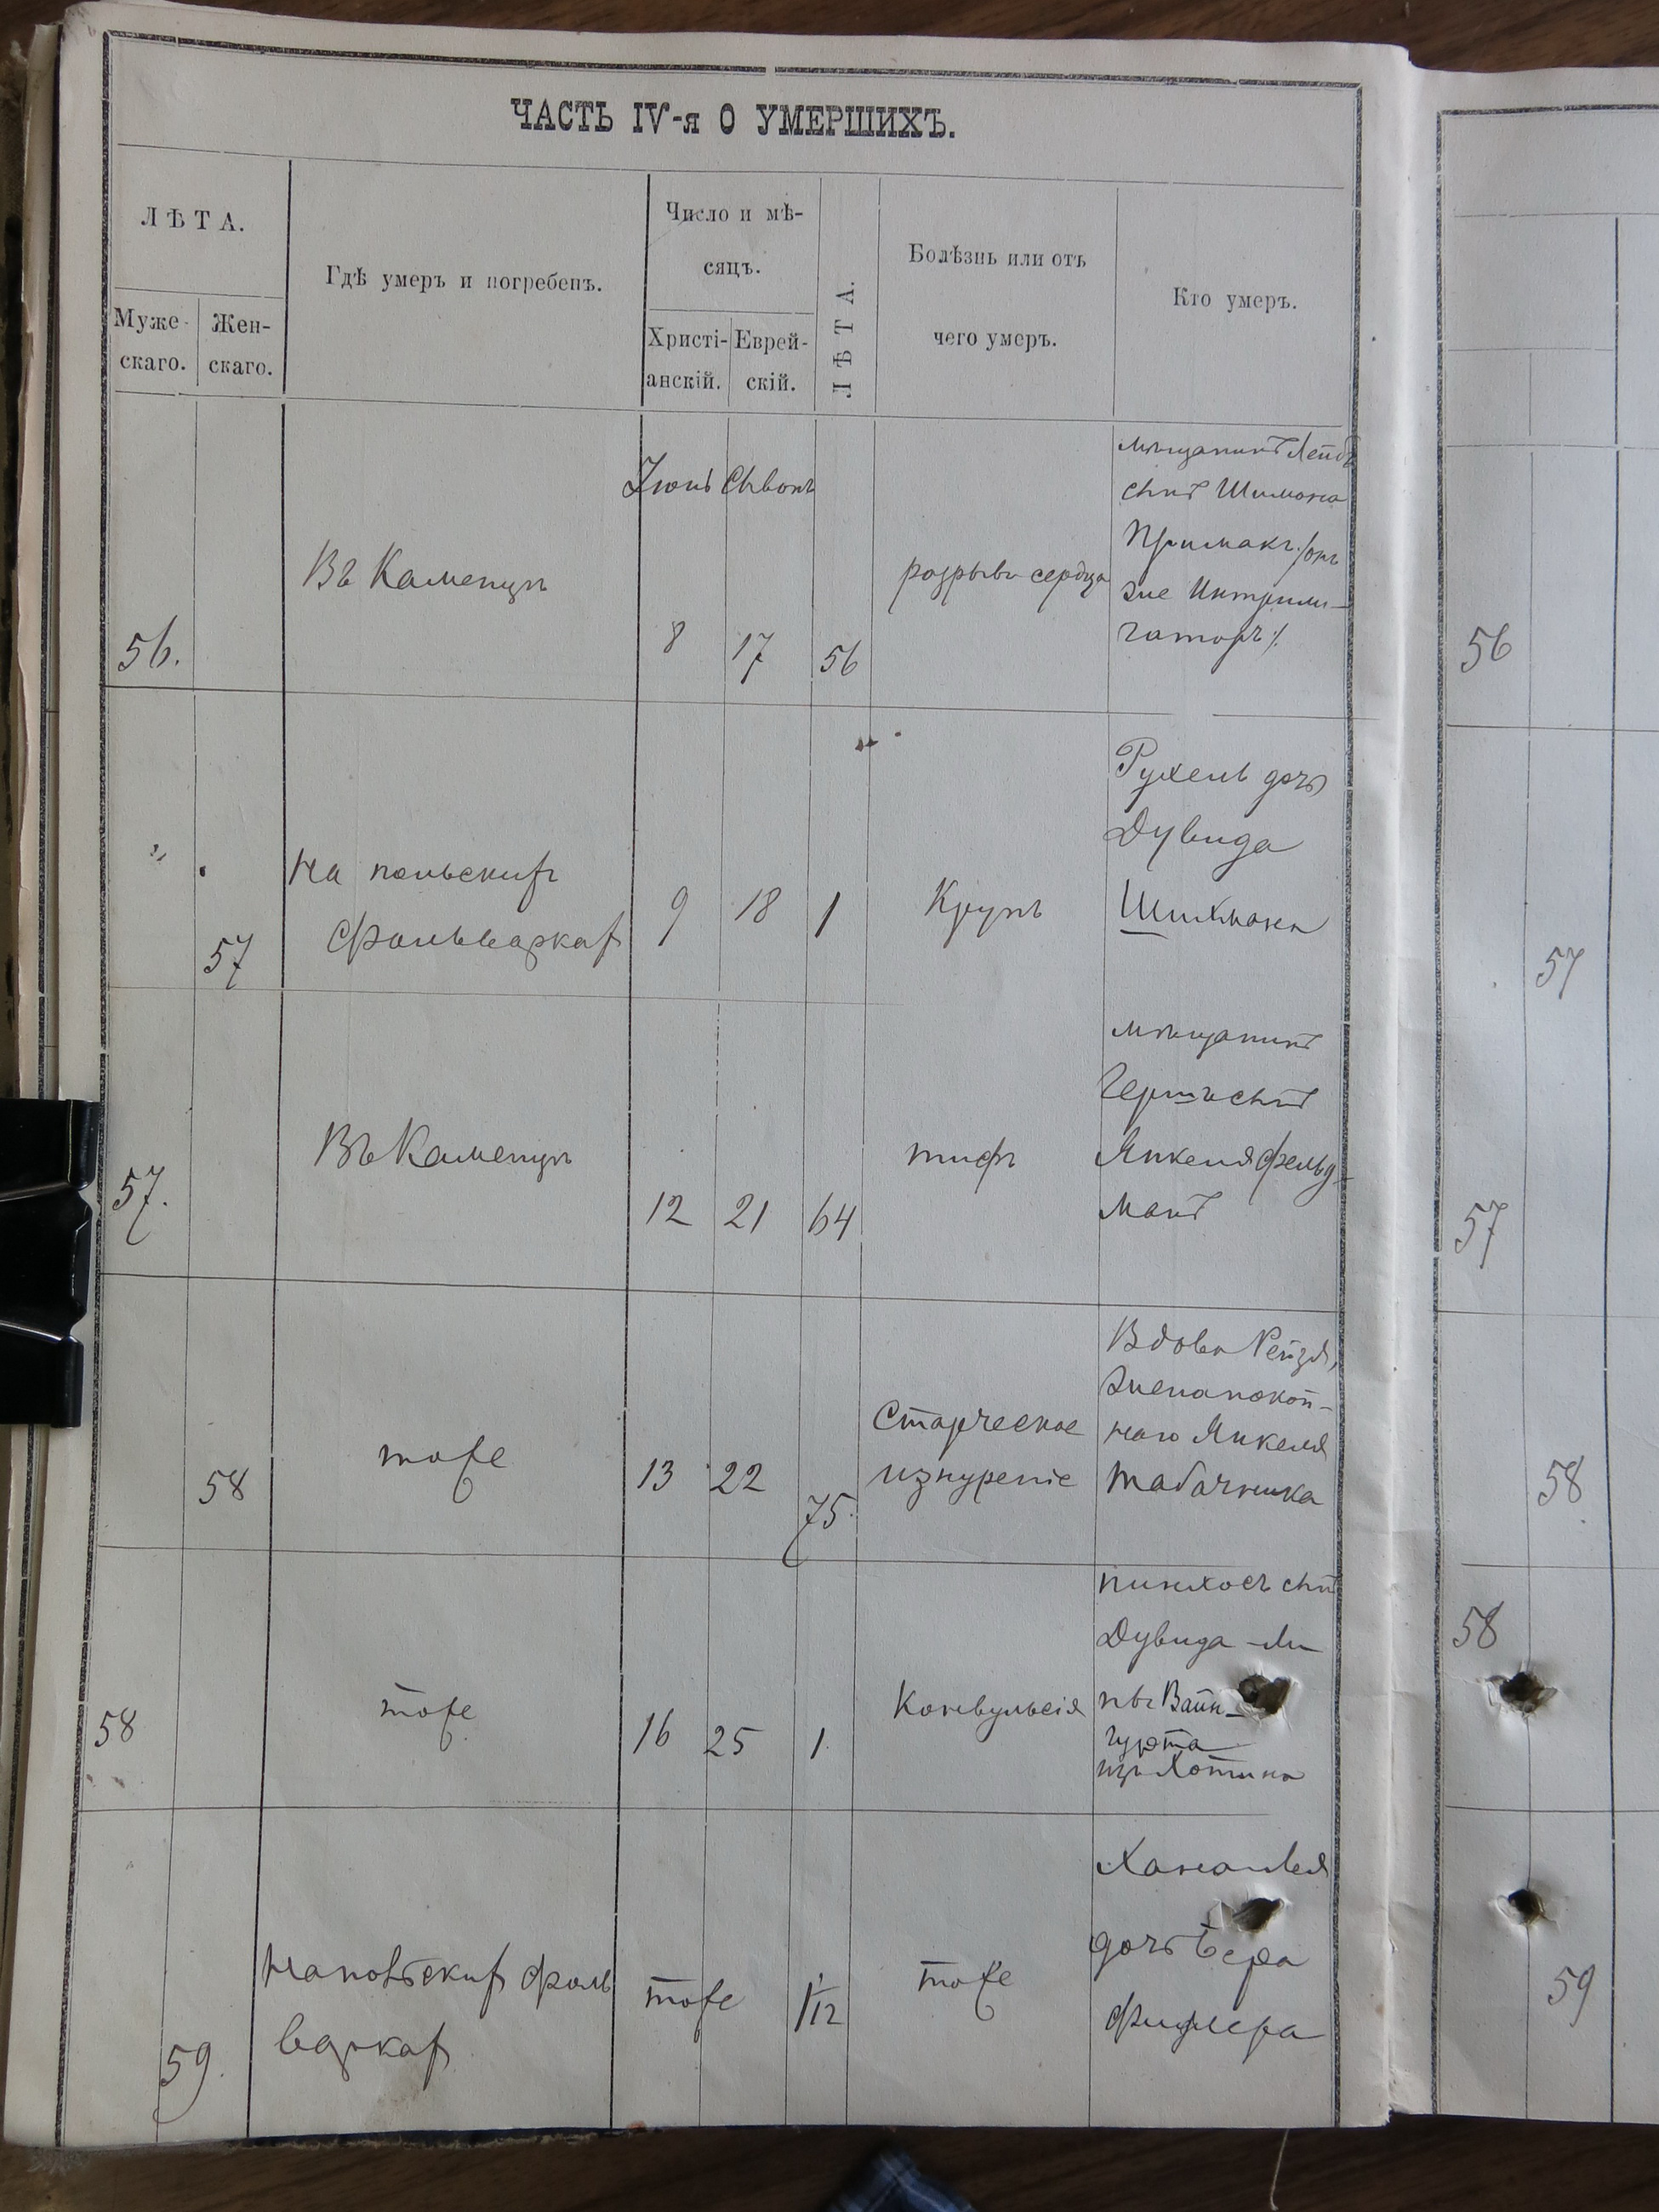 ЧАСТЬ IV-я О УМЕРШИХЪ.
ЛѢТА.
Муже-
скаго.
Жен-
скаго.
Гдѣ умеръ и погребенъ.
Число и мѣ-
сяцъ.
Христі-
анскій.
Еврей-
скій.
ЛѢТА.
Болѣзнь или отъ
чего умеръ.
Кто умеръ.
56.
Въ Каменцѣ
Іюнь Сивонъ
8 17 56
розрывъ сердца
мѣщанинъ Лейбъ
сынъ Шимона
Примакъ /онъ
же Интроли-
гаторъ/.
56
" 57
На польскихъ
фольваркахъ
9 18 1
Крупъ
Рухель дочь
Дувида
Шихмана
57
57.
Въ Каменцѣ
12 21 64
тифъ
мѣщанинъ
Гершъ сынъ
Янкеля Фельд-
манъ
57
58
тоже
13 22 75
Старческое
изнуреніе
Вдова Рейзя,
жена покой-
наго Янкеля
Табачника
58
58
тоже
16 25 1
Конвульсія
Пинхосъ сынъ
Дувида
Вайн-
гурта
изъ Хотина
58
59.
На польскихъ фоль
варкахъ
тоже
1/12
тоже
Хана Лея
дочь Бера
59